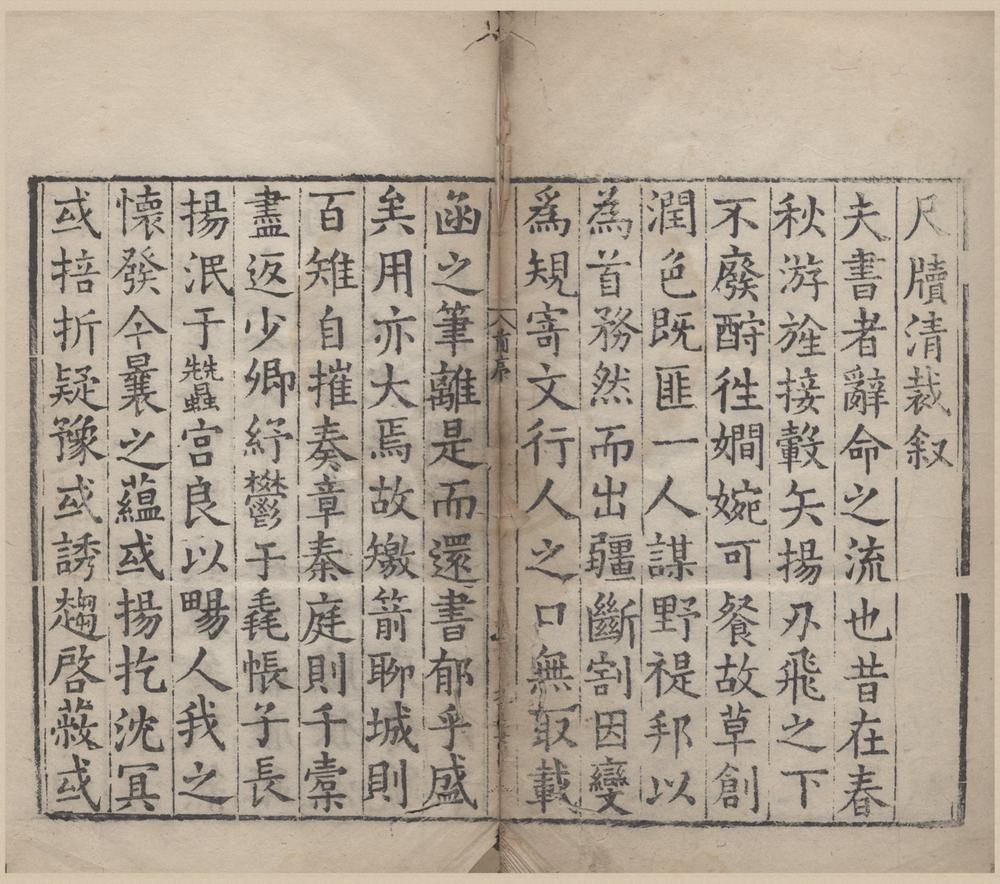 尺牘清裁叙
夫書者辭命之流也昔在春
秋游旌接轂矢揚刃飛之下
不廢酧徃嫺婉可餐故草創
潤色既匪一人謀野禔邦以
為首務然而出疆斷割因變
爲規寄文行人之口無取載
前序
函之筆離是而還書郁乎盛
矣用亦大焉故繳箭聊城則
百雉自摧奏章秦庭則千橐
盡返少卿紓鬱于毳帳子長
揚泯于蠶宮良以暢人我之
懷發今曩之蘊或揚扢沈冥
或掊折疑豫或誘趨啓蔽或